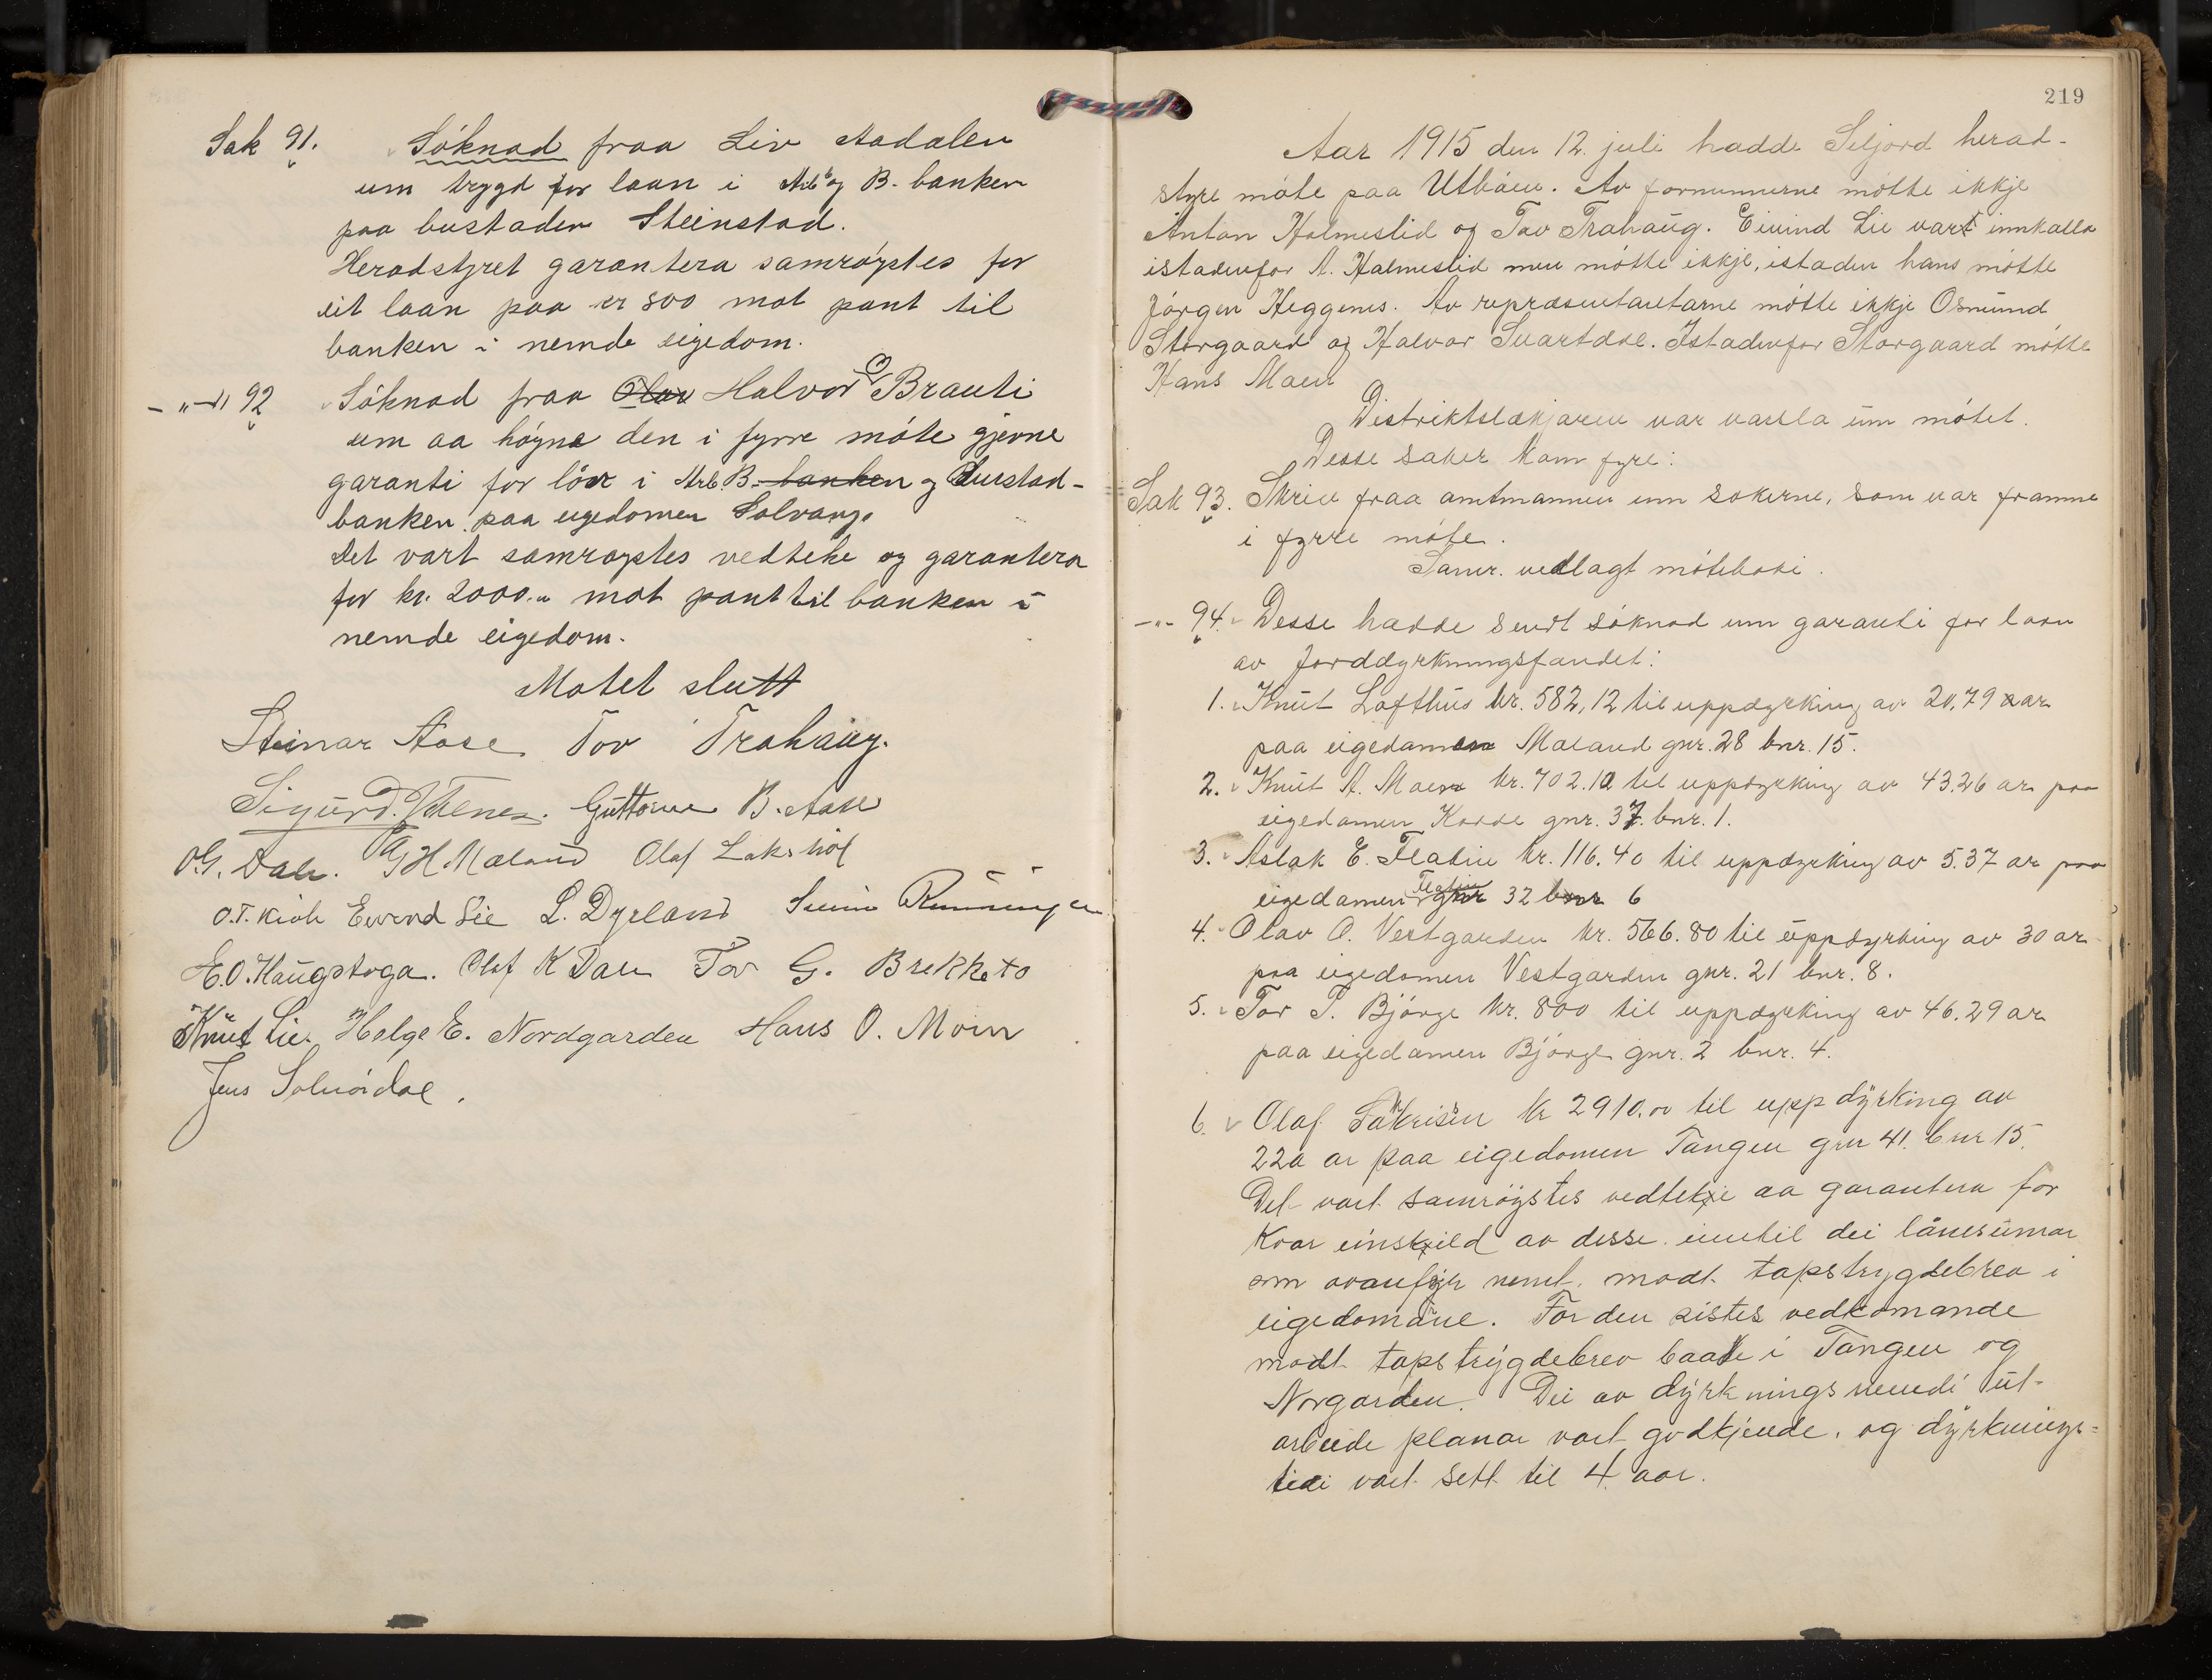 Sak 91. Söknad fraa Liv Aadalen
um trygd for laan i Arb. og B. banken
paa bustaden Steinstad.
Heradstyret garantera samröystes for
eit laan paa kr 800 mot pant til
banken i nemde eigedom.
— " — 92 Söknad fraa Halvor O Brauti
um aa högna den i fyrre möte gjevne
garanti for lön i Arb. B. og Bustad-
banken paa eigedomen Solvang.
Det vart samröystes vedteke og garantera
for kr. 2000.- mot pant til banken i
nemde eigedom.
Motet slutt
Steinar Aase Tov Trahaug.
Sigurd Utlenes. Guttorm B. Aase
O.G. Dale. G H. Mæland Olaf Lakshöl
O.T. Kiøle Eivind Lie L. Dyrland Svein Runningen
E.O. Haugstoga. Olaf K Dale Tov G. Brekketo
Knut Lie. Helge E. Nordgarden Hans O. Moen
Jens Solnördal.
219
Aar 1915 den 12. juli hadde Seljord herad-
styre möte paa Utböen. Av formennerne mötte ikkje
Anton Holmeslid og Tov Trahaug. Eivind Lie vart innkalla
istadenfor A. Halmeslid men mötte ikkje, istaden hans mötte
Jörgen Heggenes. Av repræsentantarne mötte ikkje Osmund
Storgaard og Halvor Svartdal. Istadenfor Storgaard mötte
Hans Moen
Distriktslækjaren var varsla um mötet.
Desse saker kom fyre:
Sak 93. Skriv fraa amtmannen um sokerne, som var framme
i fyrre möte.
Samr. vedlagt möteboki.
— " — 94. Desse hadde sendt söknad um garanti for laan
av Jorddyrkningsfondet:
1. Knut Lofthus kr. 582,12 til uppdyrking av 20,79 ar
paa eigedomen Mæland gnr. 28 bnr. 15.
2. Knut A. Moen kr. 702.10 til uppdyrking av 43.26 ar paa
eigedomen gnr. 37. bnr. 1.
3. Aslak E. Flatin kr. 116.40 til uppdyrking av 5.37 ar paa
eigedomen Flatin gnr 32 bnr 6
4. Olav O. Vestgarden kr. 566.80 til uppdyrking av 30 ar
paa eigedomen Vestgarden gnr. 21 bnr. 8.
5. Tor T. Bjørge kr. 800 til uppdyrking av 46.29 ar
paa eigedomen Bjørge gnr. 2 bnr. 4.
6. Olaf kr 2910.00 til uppdyrking av
220 ar paa eigedomen Tangen gnr 41. bnr 15.
Det vart samröystes vedtekje aa garantera for
kvar einskild av desse inntil dei lånesumar
som ovanfyr nemt. modt. tapstrygdebrev i
eigedomane. For den sistes vedkomande
modt tapstrygdebrev baade i Tangen og
Norgarden. Dei av dyrkningsnemdi ut-
arbeide planar vart godkjende. og dyrknings-
tidi vart sett til 4 aar.